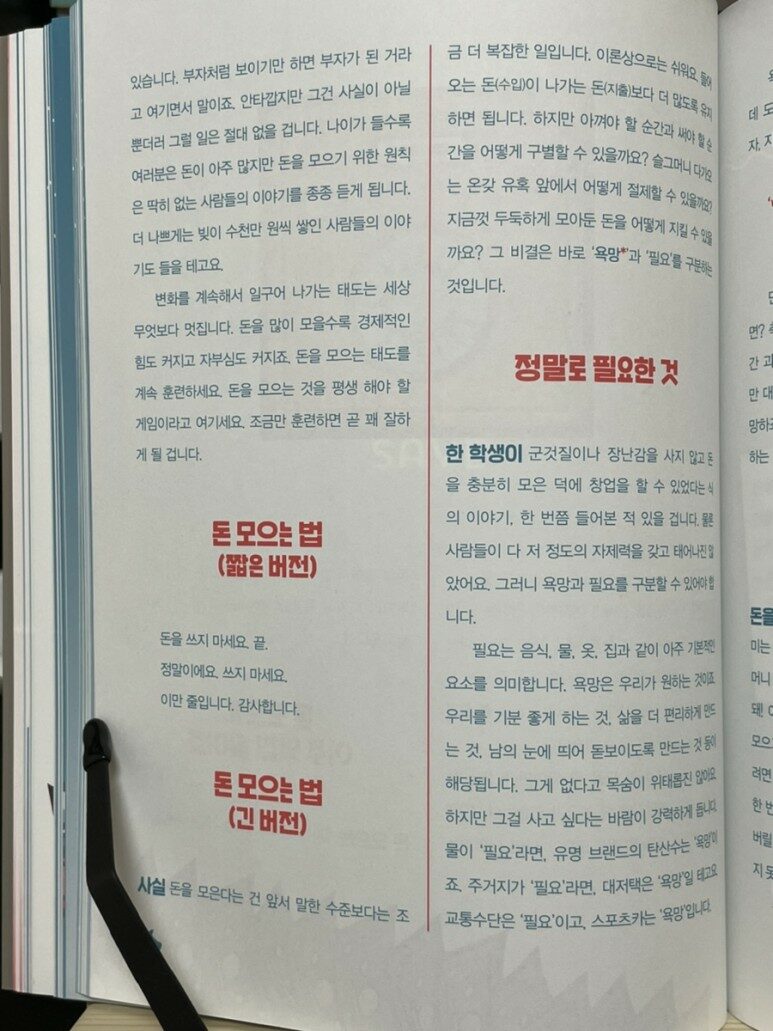 있습니다. 부자처럼 보이기만 하면 부자가 된 거라
고 여기면서 말이죠. 안타깝지만 그건 사실이 아닐
뿐더러 그럴 일은 절대 없을 겁니다. 나이가 들수록
여러분은 돈이 아주 많지만 돈을 모으기 위한 원칙
은 딱히 없는 사람들의 이야기를 종종 듣게 됩니다.
더 나쁘게는 빚이 수천만 원씩 쌓인 사람들의 이야
기도 들을 테고요.
변화를 계속해서 일구어 나가는 태도는 세상
무엇보다 멋집니다. 돈을 많이 모을수록 경제적인
힘도 커지고 자부심도 커지죠. 돈을 모으는 태도를
계속 훈련하세요. 돈을 모으는 것을 평생 해야 할
게임이라고 여기세요. 조금만 훈련하면 곧 꽤 잘하
게 될 겁니다.
돈 모으는 법
(짧은 버전)
돈을 쓰지 마세요. 끝.
정말이에요. 쓰지 마세요.
이만 줄입니다. 감사합니다.
돈 모으는 법
(긴 버전)
사실 돈을 모은다는 건 앞서 말한 수준보다는 조
금 더 복잡한 일입니다. 이론상으로는 쉬워요. 들어
오는 돈(수입)이 나가는 돈(지출)보다 더 많도록 유지
하면 됩니다. 하지만 아껴야 할 순간과 써야 할 순
간을 어떻게 구별할 수 있을까요? 슬그머니 다가오
는 온갖 유혹 앞에서 어떻게 절제할 수 있을까요?
지금껏 두둑하게 모아둔 돈을 어떻게 지킬 수 있을
까요? 그 비결은 바로 ‘욕망*’과 ‘필요’를 구분하는
것입니다.
정말로 필요한 것
한 학생이 군것질이나 장난감을 사지 않고 돈
을 충분히 모은 덕에 창업을 할 수 있었다는 식
의 이야기, 한 번쯤 들어본 적 있을 겁니다. 물론
사람들이 다 저 정도의 자제력을 갖고 태어나진 않
았어요. 그러니 욕망과 필요를 구분할 수 있어야 합
니다.
필요는 음식, 물, 옷, 집과 같이 아주 기본적인
요소를 의미합니다. 욕망은 우리가 원하는 것이죠.
우리를 기분 좋게 하는 것, 삶을 더 편리하게 만드
는 것, 남의 눈에 띄어 돋보이도록 만드는 것 등이
해당됩니다. 그게 없다고 목숨이 위태롭진 않아요.
하지만 그걸 사고 싶다는 바람이 강력하게 듭니다.
물이 ‘필요’라면, 유명 브랜드의 탄산수는 ‘욕망’이
죠. 주거지가 ‘필요’라면, 대저택은 ‘욕망’일 테고요.
교통수단은 ‘필요’이고, 스포츠카는 ‘욕망’입니다.
데 도
자, 지
면?
간 과
만 대
망하고
하는
돈을
미는
머니
돼!
모으
려면
한 번
버릴
지 못